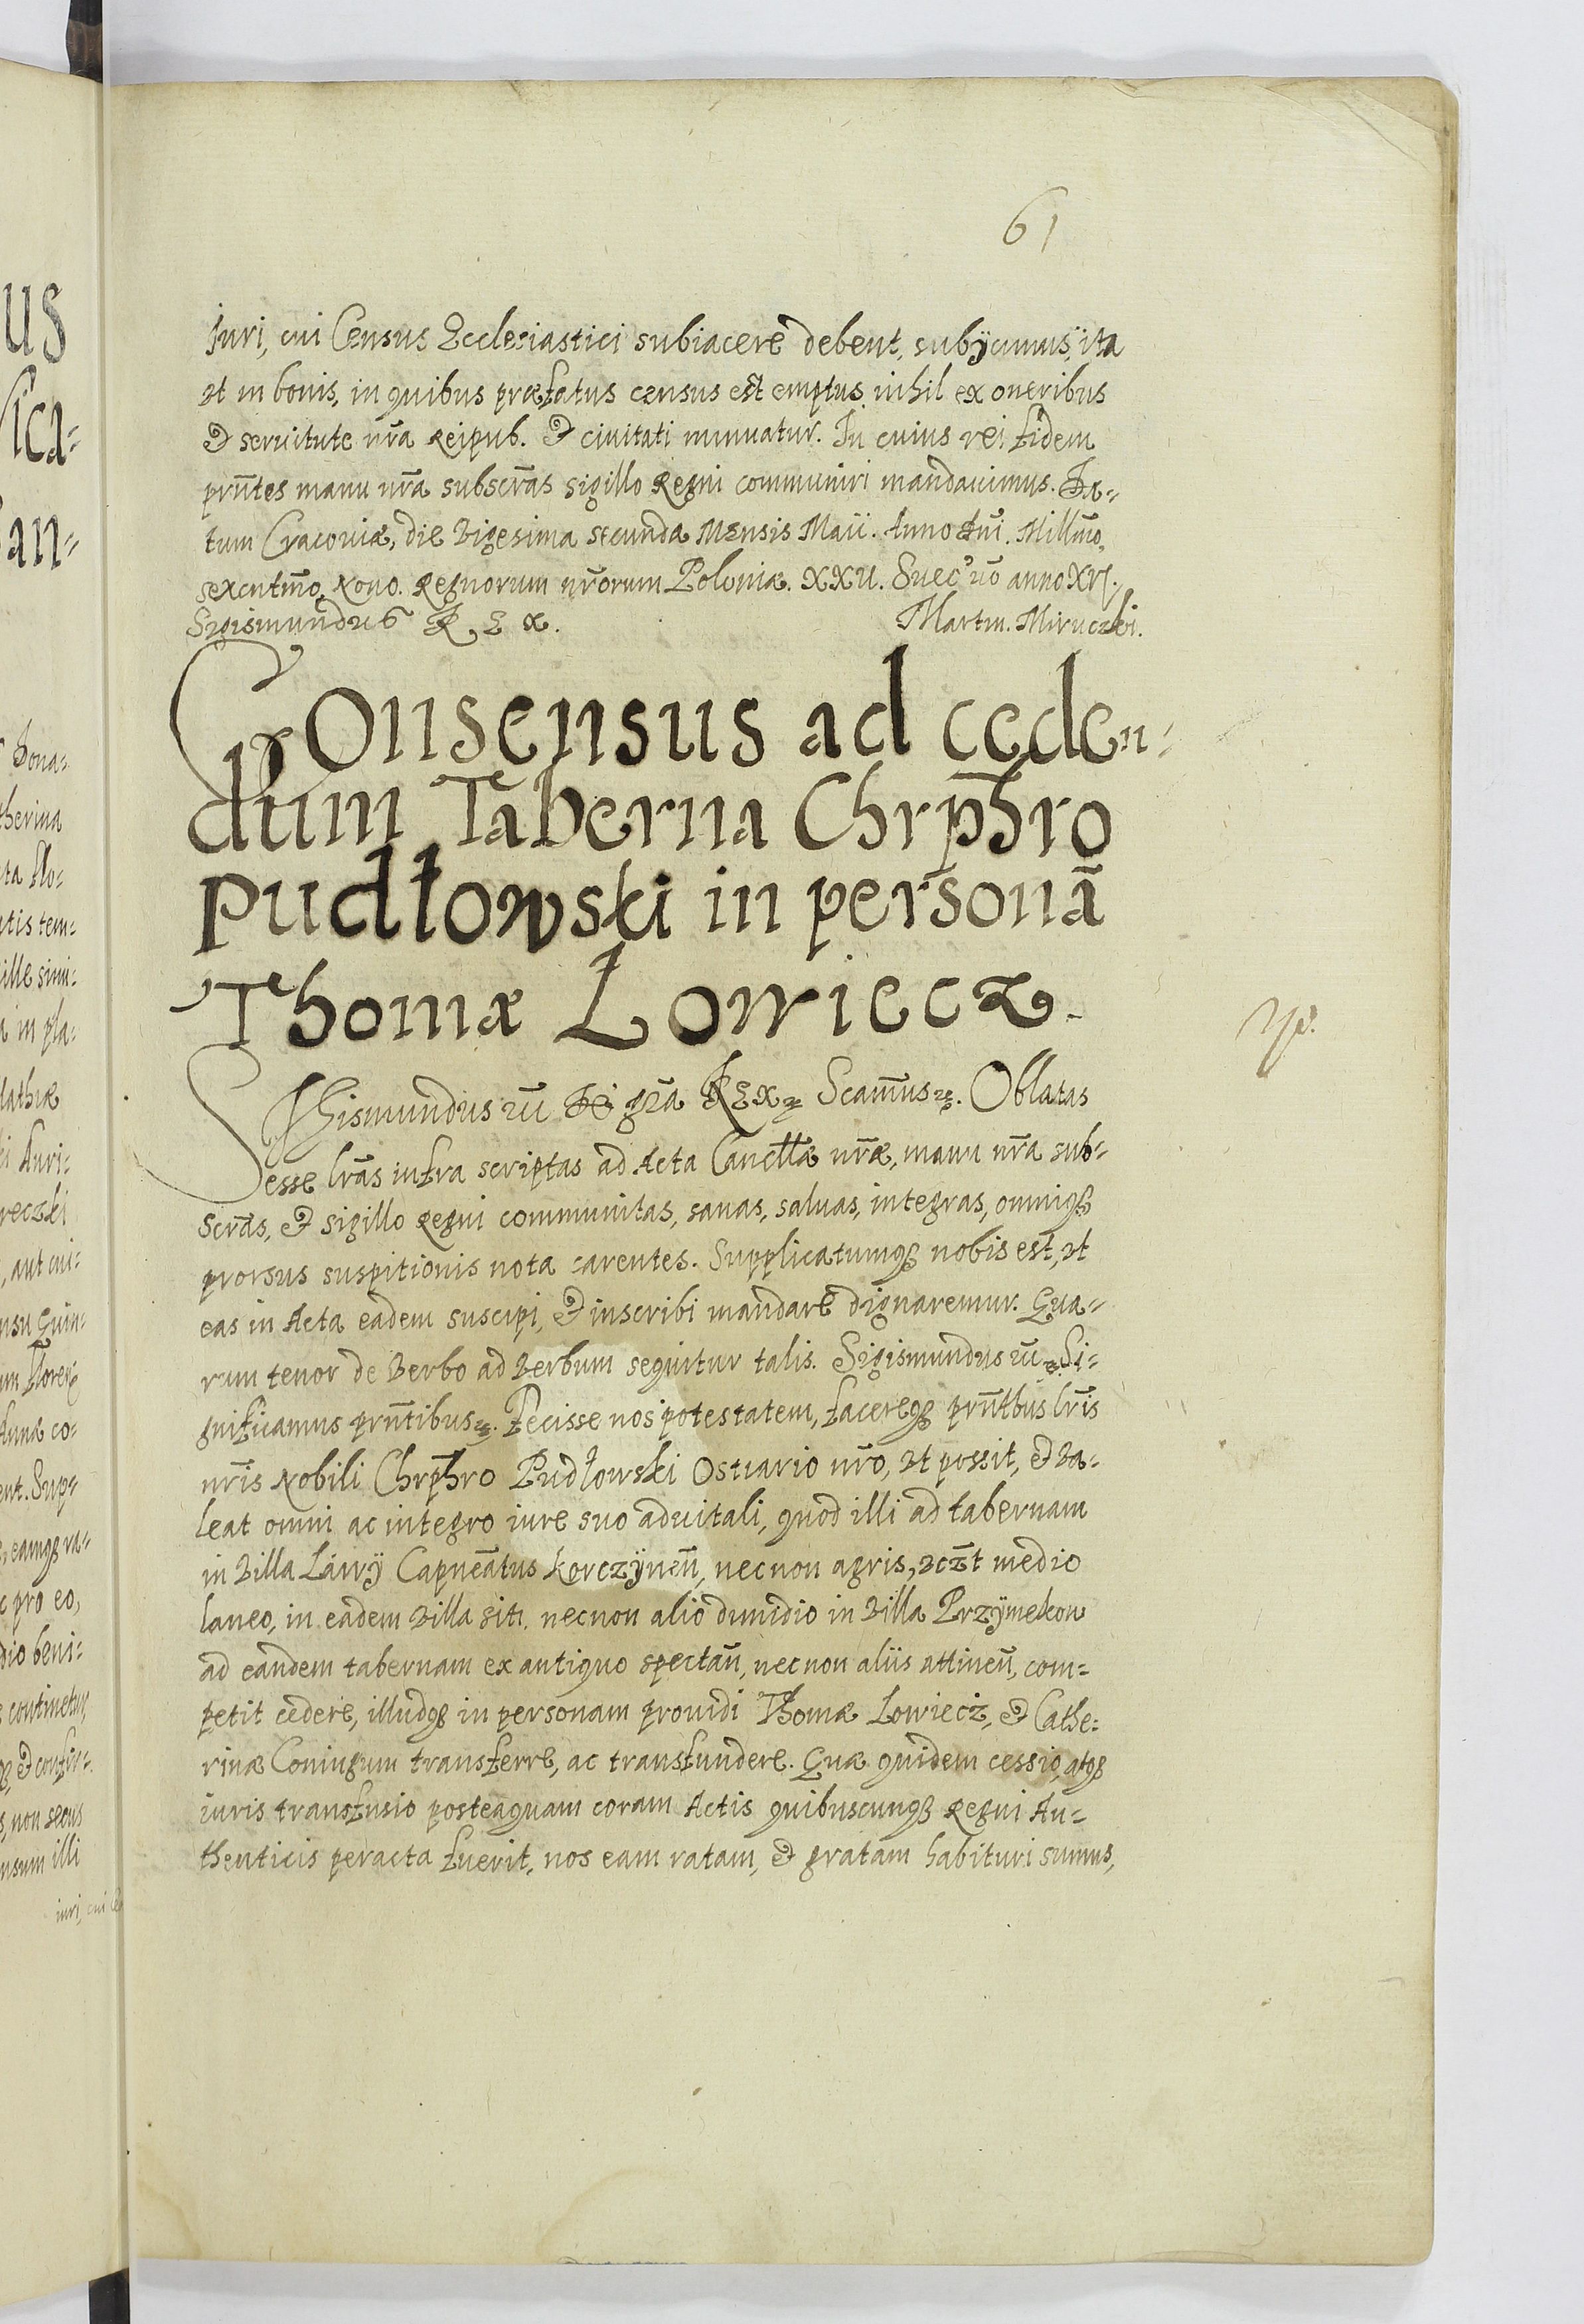 61
Iuri, cui Census Ecclesiastici subiacere debent, subÿcimus, ita
ut in bonis, in quibus præfatus census est emptus nihil ex oneribus
& seruitute nr̃a Reipub. & ciuitati minuatur. In cuius rei fidem
prñtes manu nr̃a subscr̃as sigillo Regni communiri mandauimus. Da-
tum Cracouiæ, die Vigesima secunda Mensis Maii. Anno Dñi. Millmo,
sexentmõ Nono. Regnorum nr̃orum Poloniæ. XXII. Suec' uõ anno XVI.
Sigismundus REX. Martin. Miruczki.
Consensus ad ceden-
dum Taberna Chrp̃hro
Pudłowski in personã
Thomæ Łowiecz.
SIgismundus iii Dei gr̃a REX Scam̃us. Oblatas
esse lr̃as infra scriptas ad Acta Cancllæ nr̃æ, manu nr̃a sub-
scr̃as, & sigillo Regni communitas, sanas, saluas, integras, omniq3
prorsus suspitionis nota carentes. Supplicatumq3 nobis est, ut
eas in Acta eadem suscipi, & inscribi mandare dignaremur. Qua-
rum tenor de Verbo ad Verbum sequitur talis. Sigismundus iii Si-
gnificamus prñtibus. Fecisse nos potestatem, facereq3 prñtbus lr̃is
nr̃is Nobili Chrp̃hro Pudłowski Ostiario nr̃o, ut possit, & va-
leat omni ac integro iure suo aduitali, quod illi ad tabernam
in Villa Ławÿ Capneãtus Korczÿneñ, necnon agris, vczt medio
laneo, in eadem Villa siti. necnon alio dimidio in Villa Przÿmekow
ad eandem tabernam ex antiquo spectañ, necnon aliis attineñ, com-
petit cedere, illudq3 in personam prouidi Thomæ Lowiecz, & Cathe-
rinæ Coniugum transferre, ac transfundere. Quæ quidem cessio, atq3
iuris transfusio posteaquam coram Actis quibuscunq3 Regni Au-
thenticis peracta fuerit, nos eam ratam, & gratam habituri sumus,